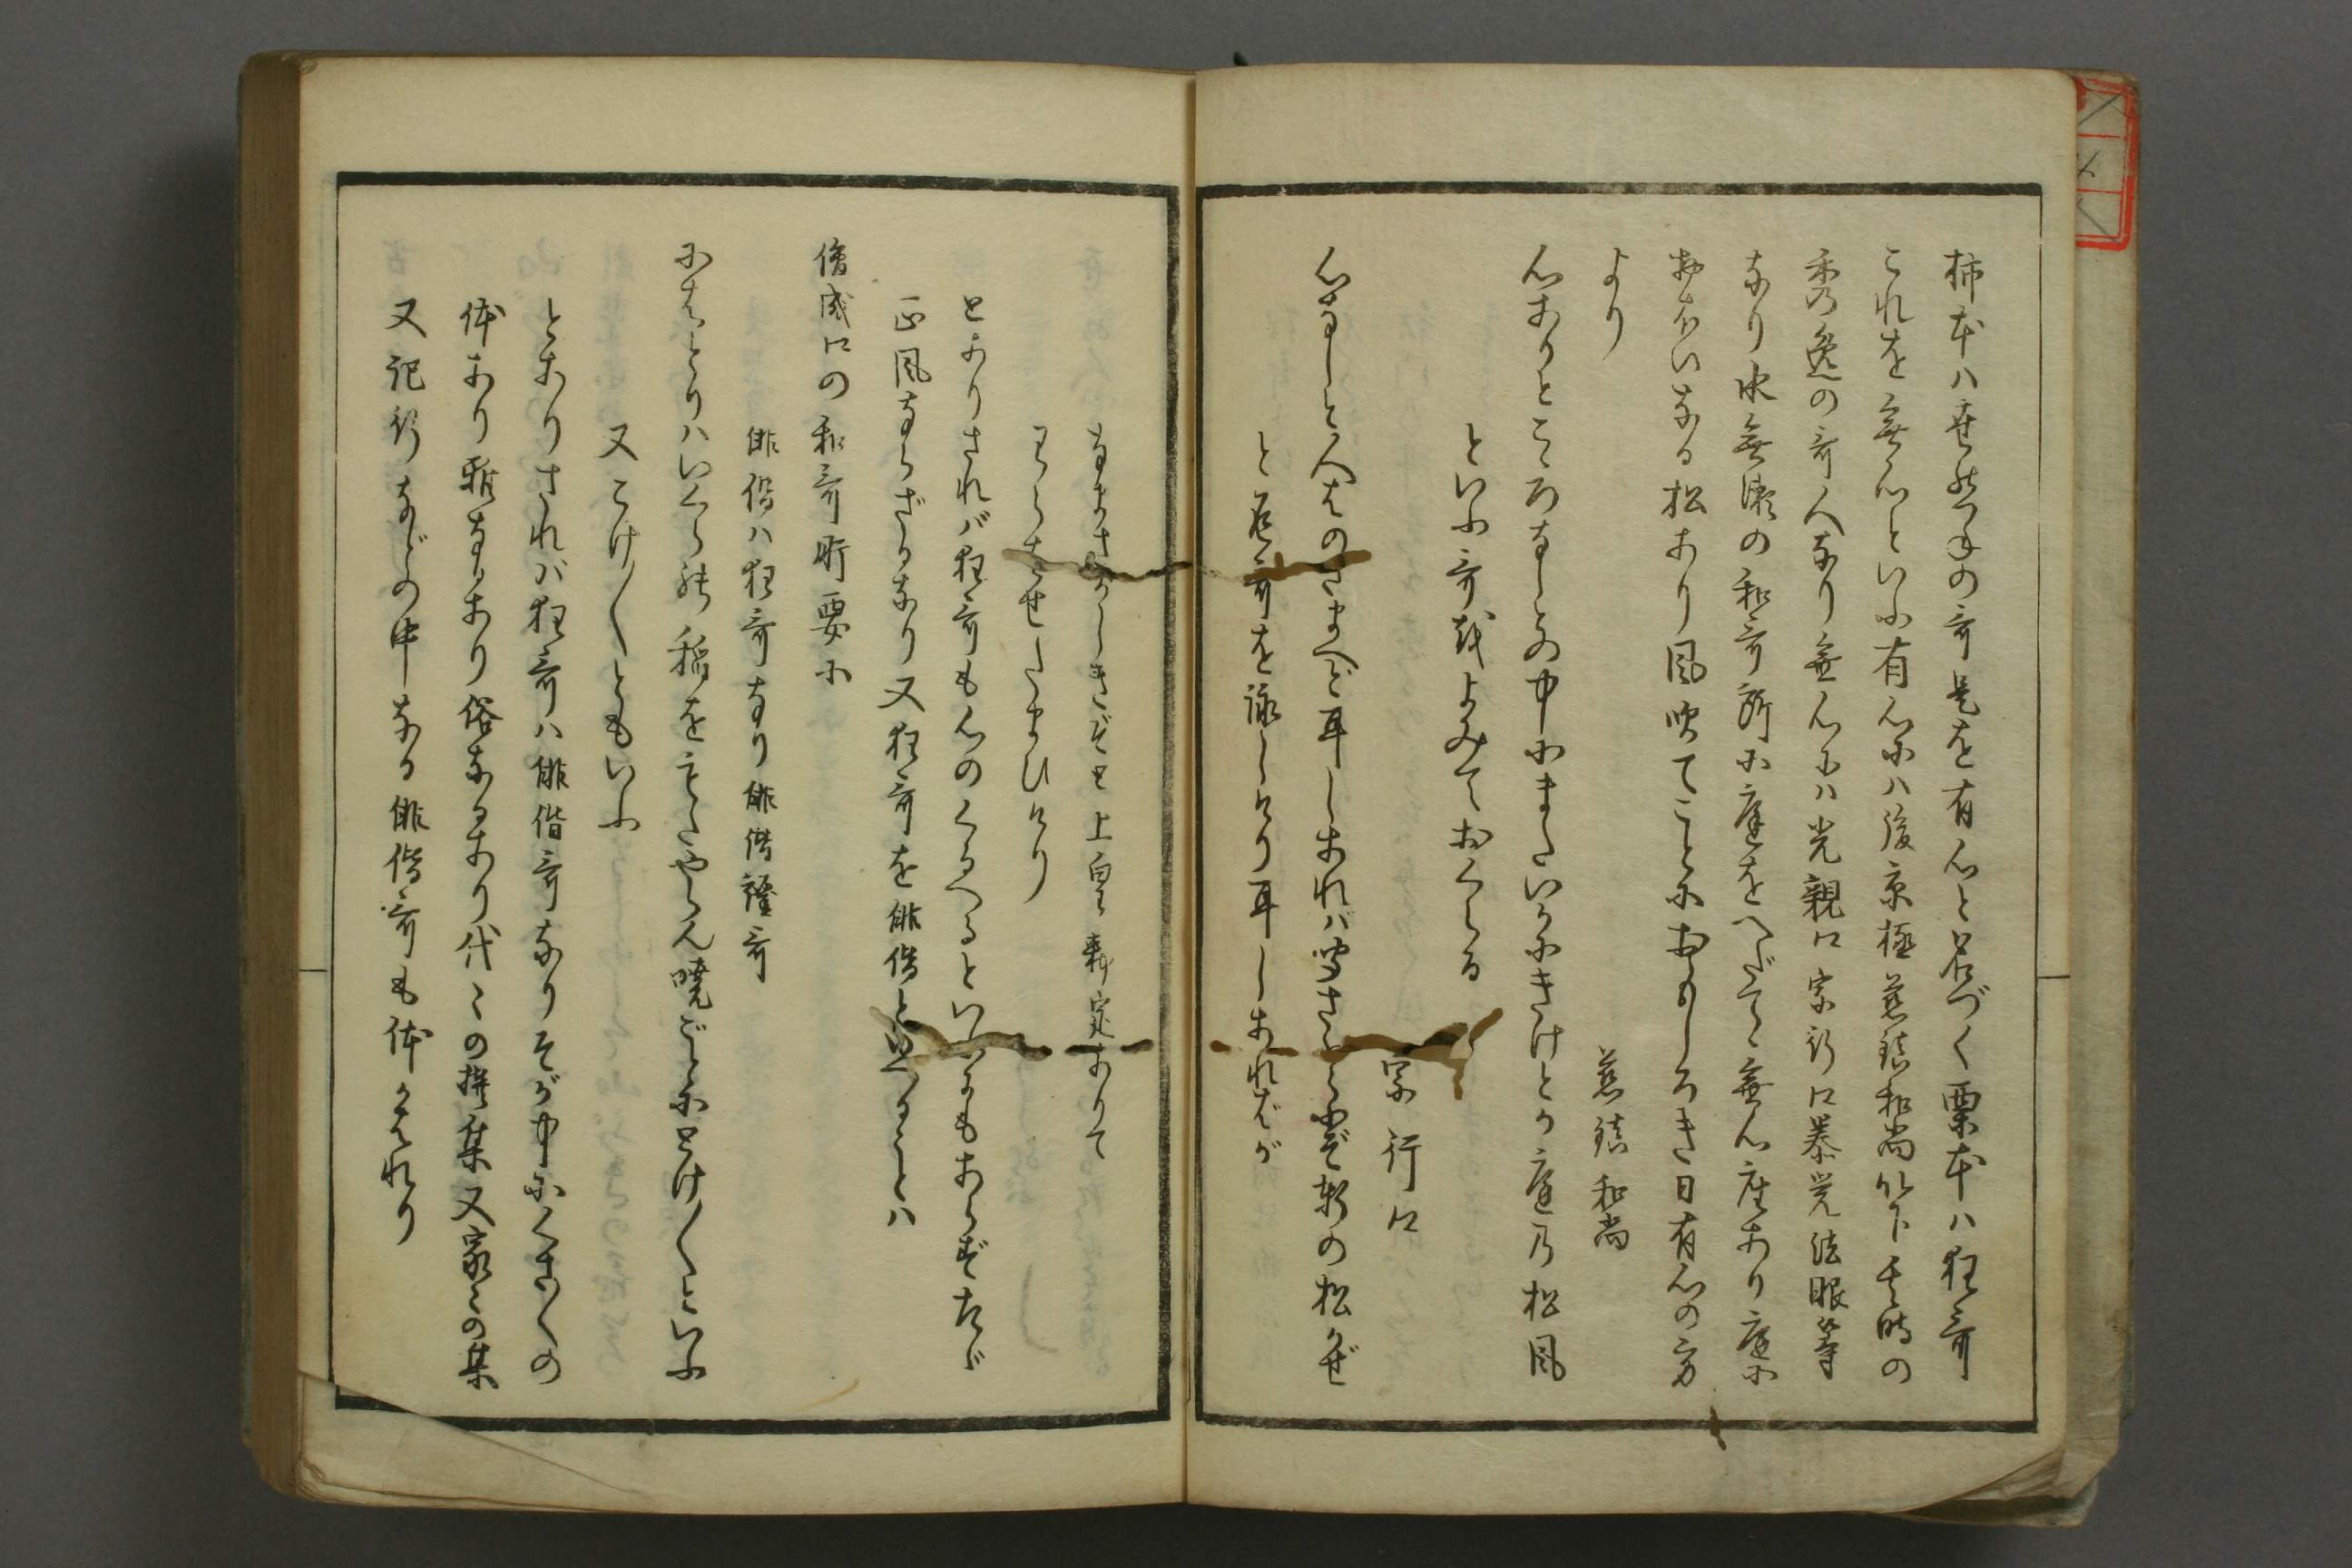 柿本ハ世の常の哥是を有心と名づく栗本ハ狂哥
これを無心といふ有心にハ後京極慈鎮和尚以下其時の
秀逸の哥人なり無心にハ光親卿宗行卿泰覚法眼等
なり水無瀬の和哥所に庭をへだてゝ無心座あり庭に
おほいなる松あり風吹てことにおもしろき日有心の方
より
慈鎮和尚
心ありとこゝろなしとの中にまたいかにきけとか庭乃松風
といふ哥越よみておくらる
宗行卿
心なしと人はのたまへど耳しあれバ聞さふらふぞ軒の松かぜ
と返哥を詠しけり耳しあれバが
なまさかしきぞと上皇勅定ありて
わらはせたまひけり
とありされバ狂哥も心のくるへるといふにもあらずたゞ
正風ならざるなり又狂哥を俳諧といへることハ
俊成卿の和哥肝要に
俳諧ハ狂哥なり俳諧謹哥
にはとりハいくら能稲をもたやらん暁ごとにとけ〳〵といふ
又こけ〳〵ともいふ
とありされバ狂哥ハ俳諧哥なりそが中にくさ〳〵の
体あり雅なるあり俗なるあり代々の撰集又家々の集
又記行などの中なる俳諧哥も体かはれり